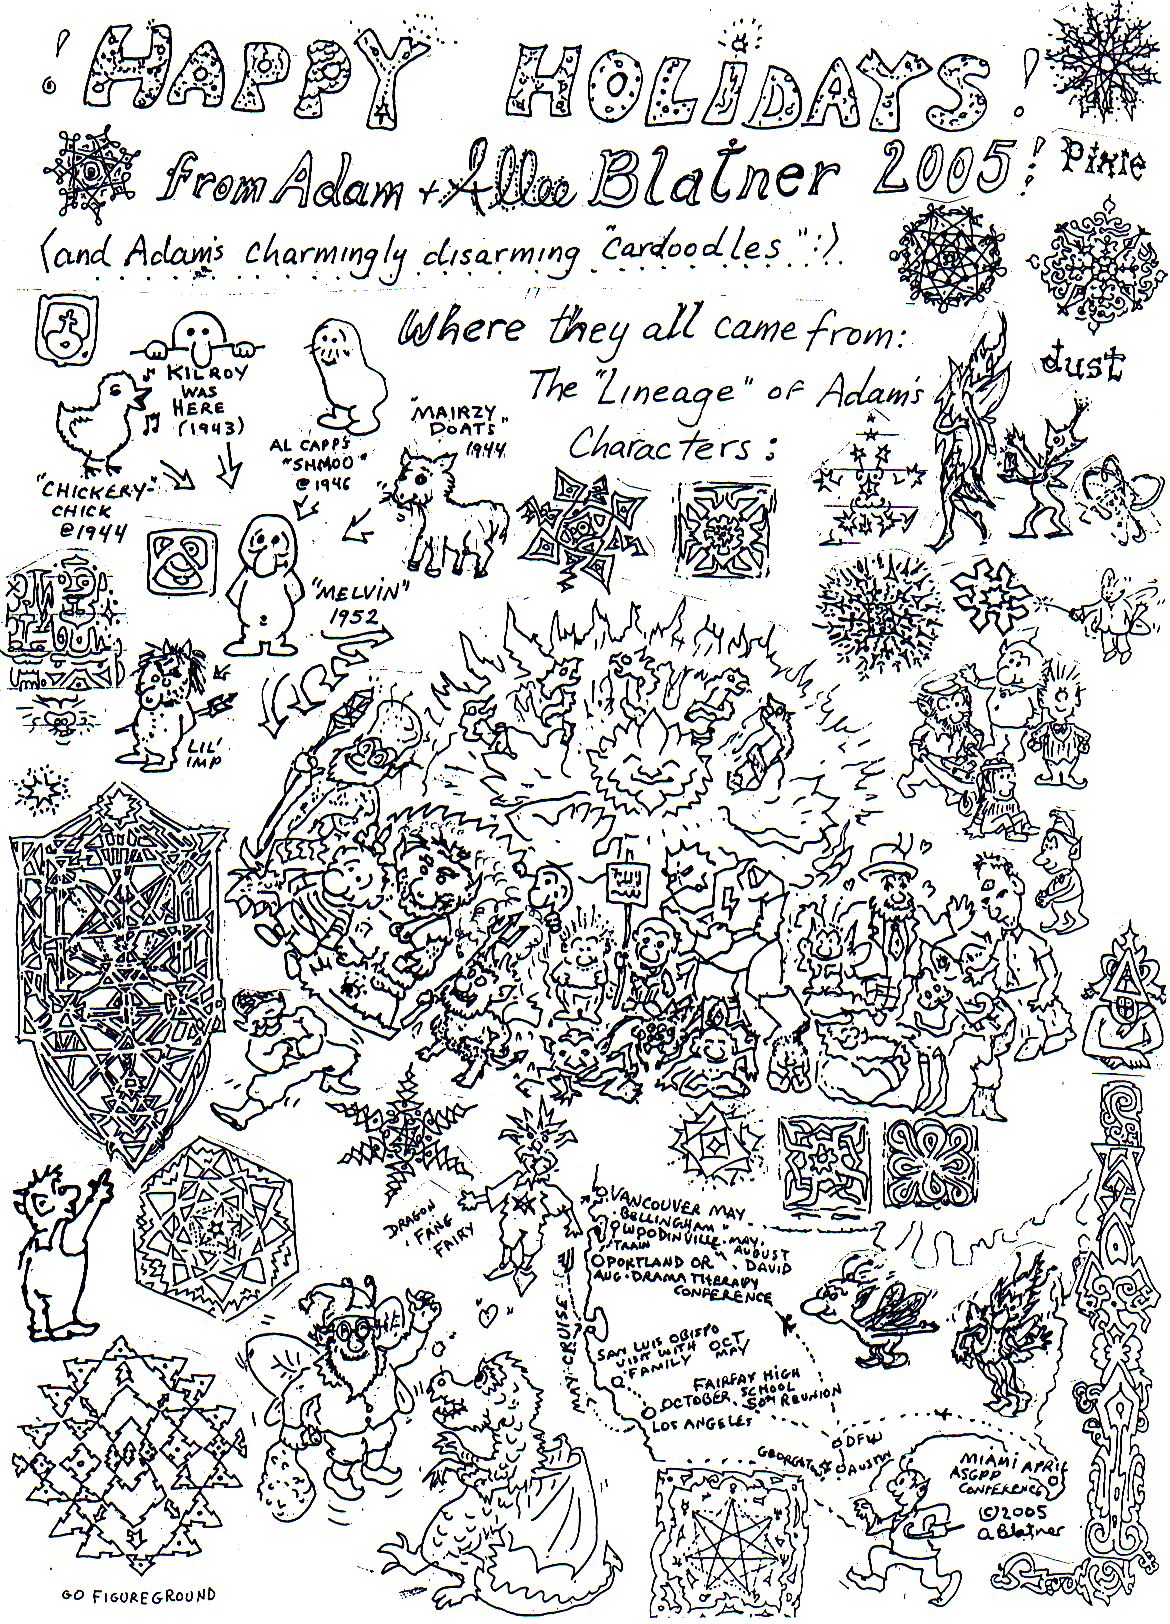 ! HAPPY HOLIDAYS !
from Adam + Allee Blatner 2005!
(and Adam's charmingly disarming "cardoodles" :).
Pixie
dust
Where they all came from:
The "Lineage" of Adam's
Characters:
KILROY
WAS
HERE
(1943)
"CHICKERY-
CHICK
@1944
AL CAPP'S
"SHMOO"
@1946
"MAIRZY
DOATS"
1944
"MELVIN"
1952
LIL'
IMP
DRAGON
FANG
FAIRY
VANCOUVER MAY
BELLINGHAM "
WOODINVILLE MAY
TRAIN " AUGUST
PORTLAND OR. DAVID
AUG. DRAMA THERAPY
CONFERENCE
MAY CRUISE
SAN LUIS OBISPO
VISIT WITH OCT
FAMILY MAY
FAIRFAX HIGH
OCTOBER. SCHOOL
50TH REUNION
LOS ANGELES
DFW
GEORGET
AUSTIN
MIAMI APRIL
ASGPP
CONFERENCE
©2005
ABlatner
GO FIGUREGROUND